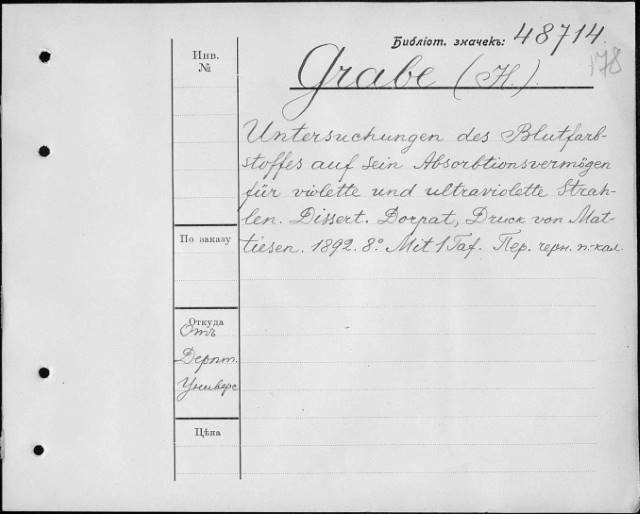 Библіот. значекъ: 48714.
178
Инв.
№
Grabe (H.).
Untersuchungen des Blutfarb-
stoffes auf sein Absorbtionsvermögen
für violette und ultraviolette Strah-
len. Dissert. Dorpat, Druck von Mat-
tiesen. 1892. 8° Mit 1 Taf. Пер. черн. п.-кал.
По заказу
Откуда
Отъ
Дерпт.
Универс
Цѣна